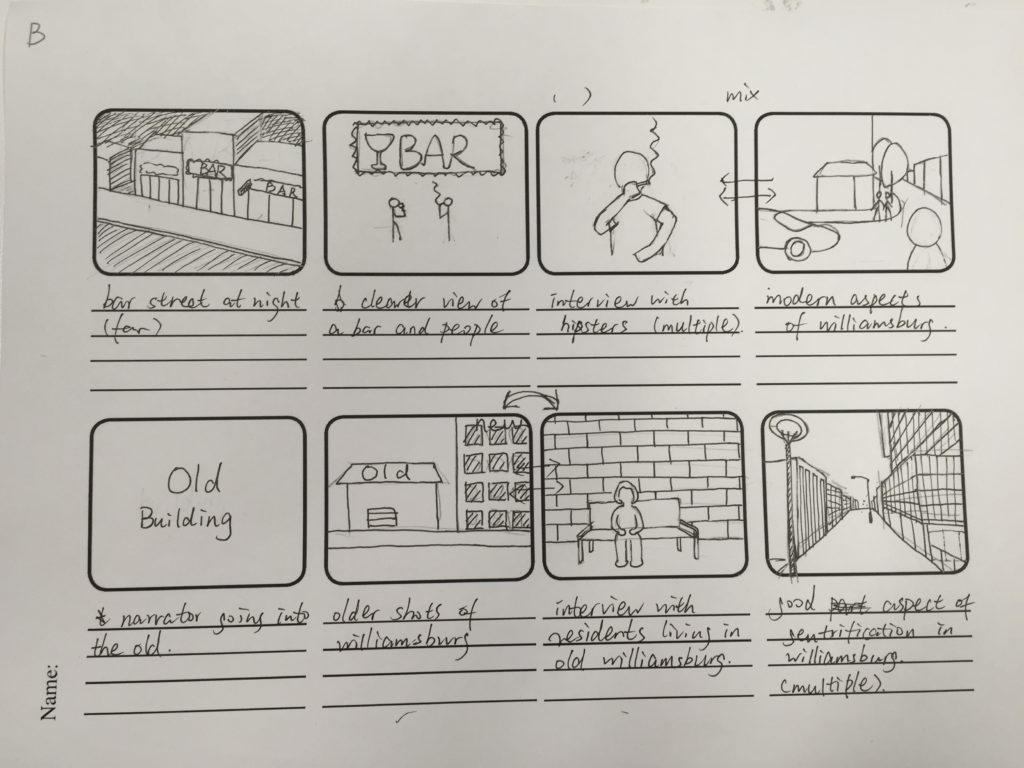 B
( )
mix
BAR
BAR
BAR
bar street at night
(far)
clearer view of
a bar and people
interview with
hipsters (multiple).
modern aspects
of williamsburg.
Old
Building
Old
new
narrator going into
the old.
older shots of
williamsburg
interview with
residents living in
old williamsburg.
good aspect of
gentrification in
williamsburg.
(multiple).
Name: